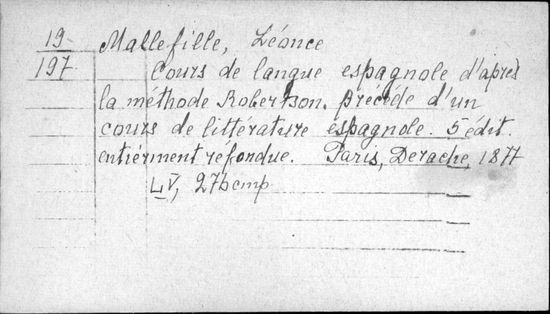 19 Mallefille, Léonce
197 Cours de langue espagnole d'après
la méthode Robertson. précédé d'un
cours de littérature éspagnole. 5 édit.
entiérment refondue. Paris, Derache, 1877
LV, 276 стр